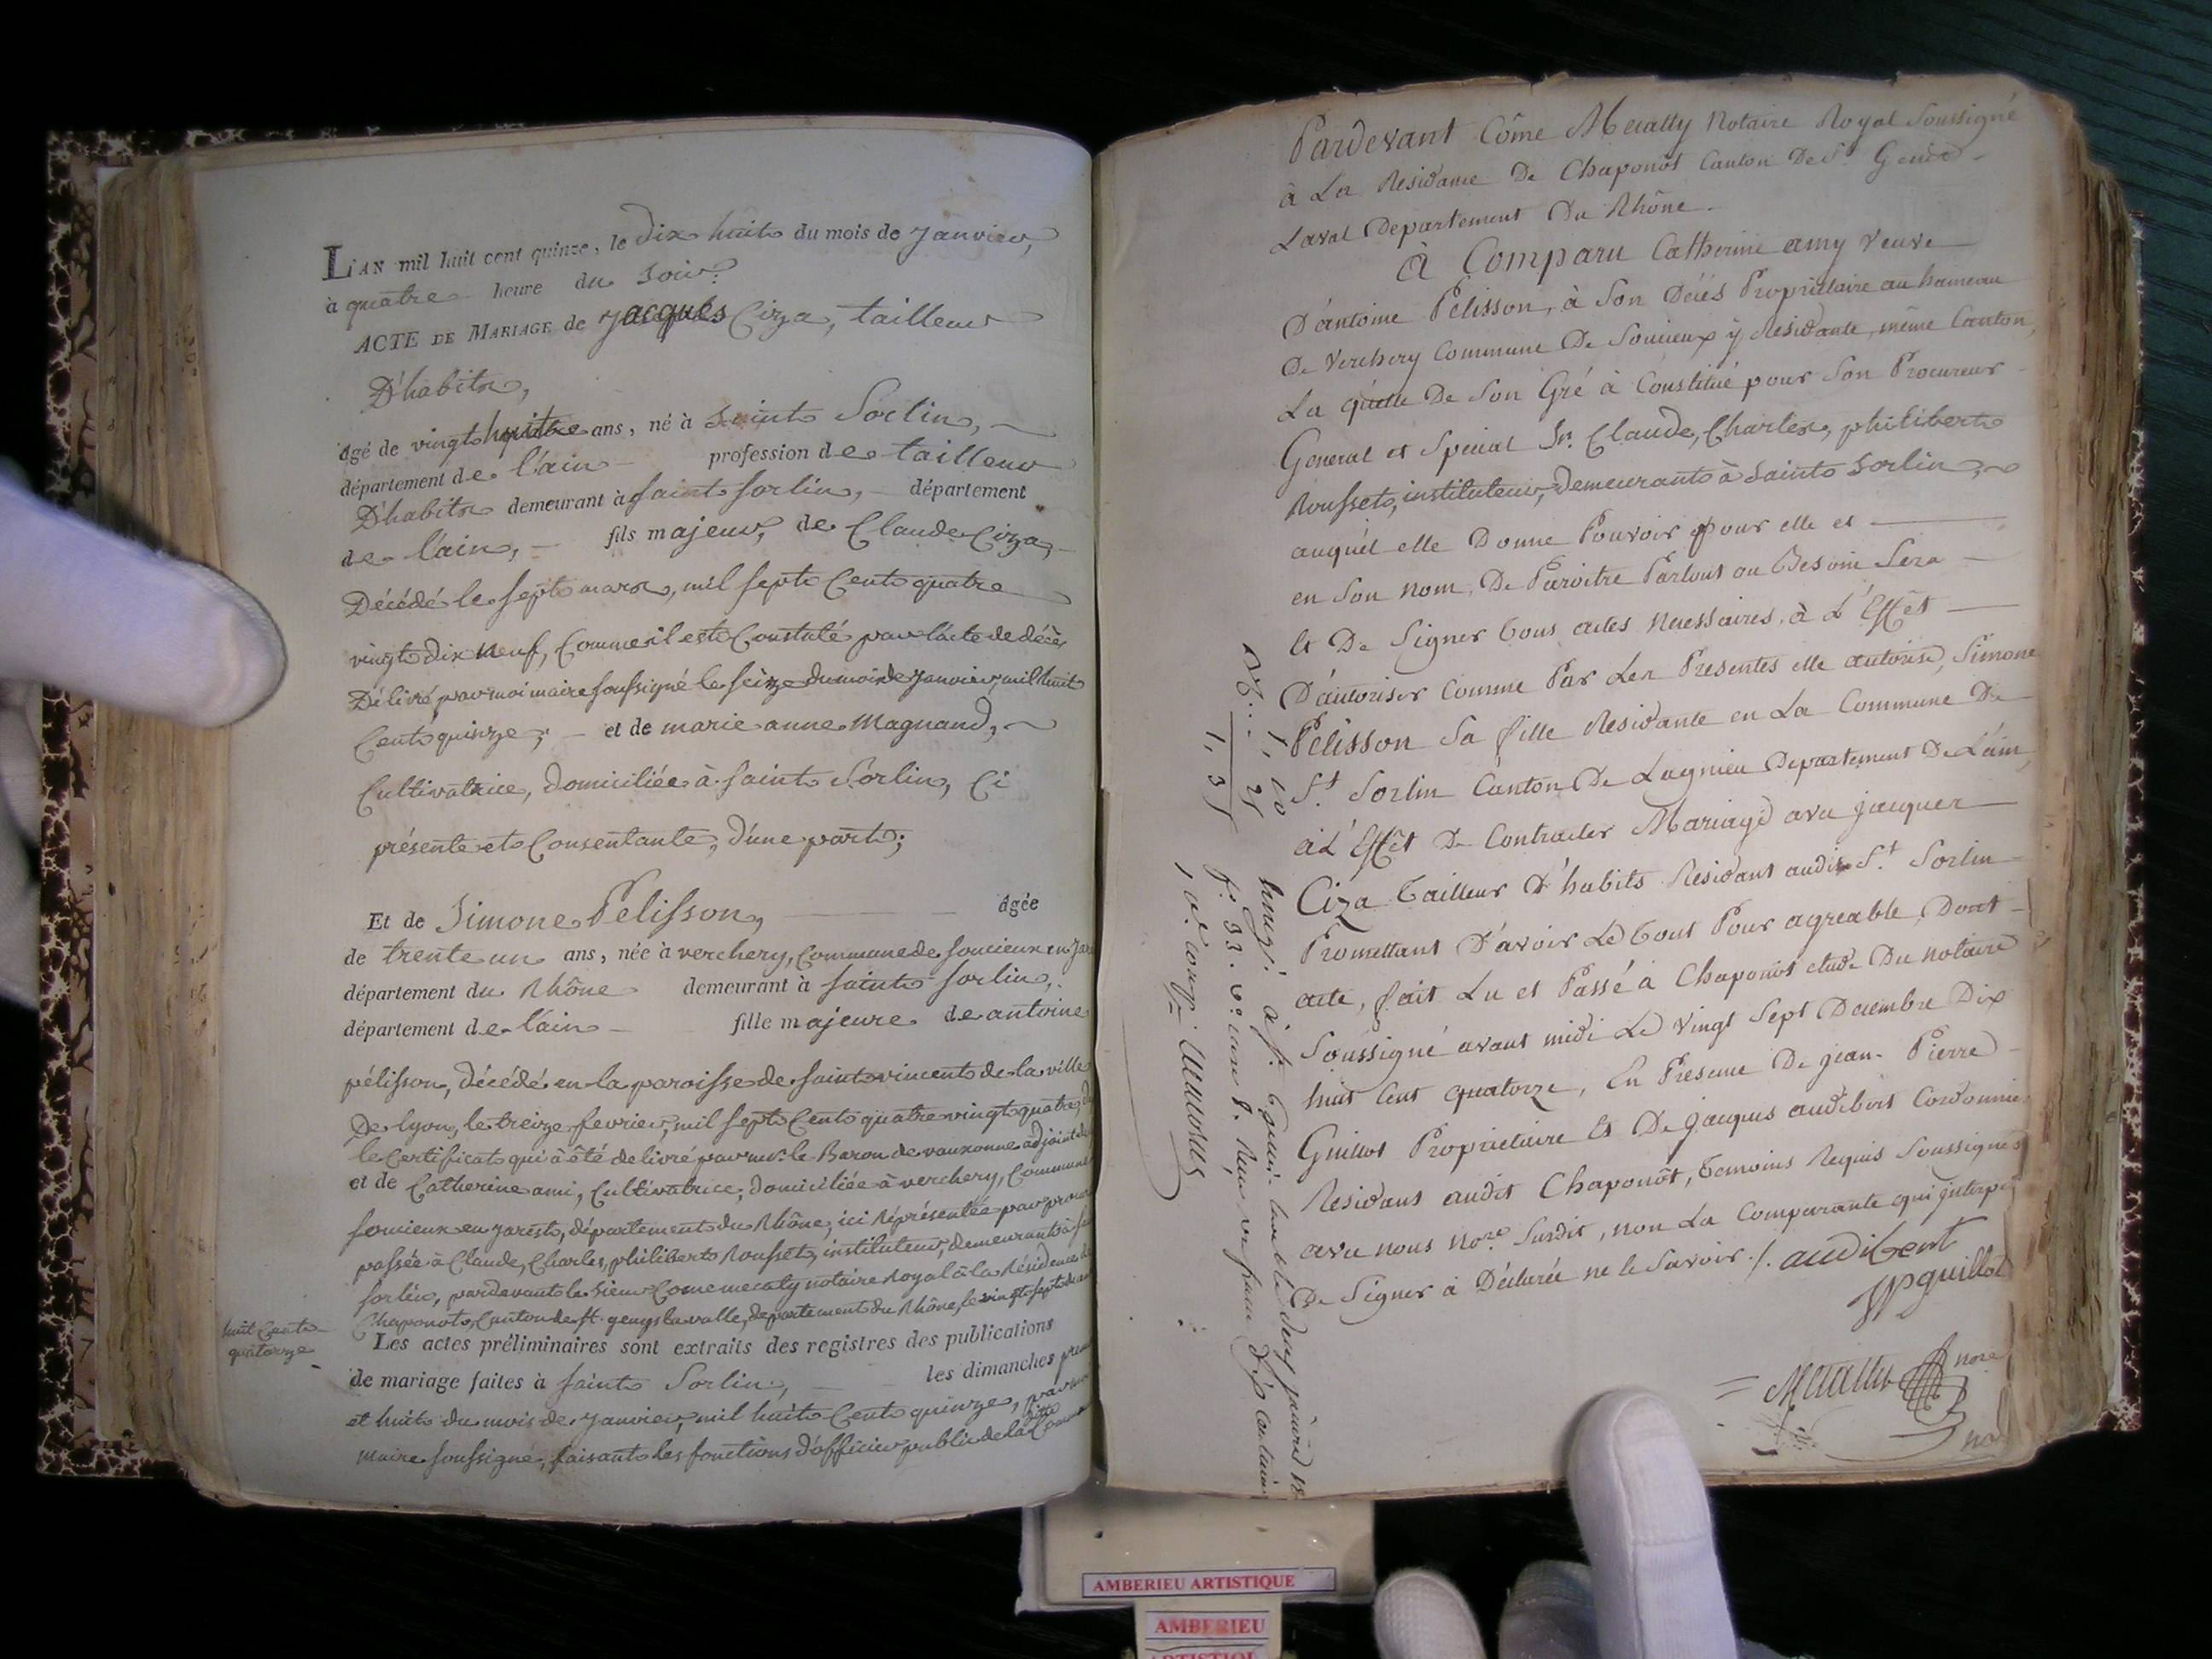 L'AN mil huit cent quinze, le dix huit du mois de janvier,
à quatre heure du soir
ACTE DE MARIAGE de jacques Ciza, tailleur
D'habits,
âgé de vingt huit ans, né à saint Sorlin,
département de l'ain profession de tailleur
D'habits demeurant à saint sorlin, département
de l'ain, fils majeur, de Claude Ciza,
Décédé le sept mars, mil sept Cent quatre
vingt dix neuf, Comme il est Constaté par l'acte de décès
Délivré par moi maire soussigné le seize du mois de janvier, mil huit
Cent quinze, et de marie anne Magnand,
Cultivatrice, domiciliée à saint Sorlin, Ci
présente et Consentante, d'une part;
Et de Simone Pélisson, âgée
de trente un ans, née à verchery, Commune de soucieux en jar
département du Rhône demeurant à saint sorlin,
département de l'ain fille majeure de antoine
pélisson, décédé en la paroisse de saint vincent de la ville
De lyon, le treize fevrier, mil sept Cent quatre vingt quatre,
le Certificat qui à été délivré par mr. le Baron de vauxonne adjoint
et de Catherine ami, Cultivatrice, domiciliée à verchery, Commune
soucieux en jarest, département du Rhône, ici Réprésentée par
passée à Claude, Charles, philibert Rousset, instituteur, demeurant à
sorlin, pardevant le sieur Come mecaty notaire Royal à la Résidence
Chaponost, Canton de st. genys lavalle, departement du Rhône, le vingt sept
huit Cent
quatorze
Les actes préliminaires sont extraits des registres des publications
de mariage faites à saint Sorlin, les dimanches
et huit du mois de janvier, mil huit Cent quinze, par
maire soussigné, faisant les fonctions d'officier public de la dette
Pardevant Côme Mecatty Notaire Royal Soussigné
à La Residance De Chaponôst Canton De St. Genis
Laval Departement Du Rhône.
à Comparu Catherine amy Veuve
D'antoine Pélisson, à Son Décès Propriétaire au hameau
De Verchery Commune De Soucieux y Residante, même Canton,
La quelle De Son Gré à Constitué pour Son Procureur
General et Special Sr. Claude, Charles, philibert
Rousset, instituteur, Demeurant à Saint Sorlin,
auquél elle Donne Pouvoir Pour elle et
en Son nom, De Paroitre Partout ou Besoin Sera
Et De Signer tous actes necessaires, à L'Effét
D'autoriser Comme Par Les Presentes elle autorise, Simone
Pélisson Sa fille Residante en La Commune De
St. Sorlin Canton De Lagnieu Departement De L'ain,
à L'Effét De Contracter Mariage avec jacques
Ciza Tailleur D'habits Residant audit St. Sorlin
Promettant D'avoir Le tout Pour agreable, Dont
acte, fait Lu et Passé à Chaponôst etude Du notaire
Soussigné avant midi Le Vingt Sept Decembre Dix
huit Cent quatorze, En Presence De jean Pierre
Guillot Proprietaire Et De jacques audibert Cordonnie
Residans audit Chaponôst, temoins Requis Soussignés
avec nous nore. Susdit, non La Comparante qui
De Signer à Déclarée ne le Savoir./. audibert
JPguillot
nore
1, 10
25
1, 35
AMBERIEU ARTISTIQUE
AMBERIEU
ARTISTIQUE